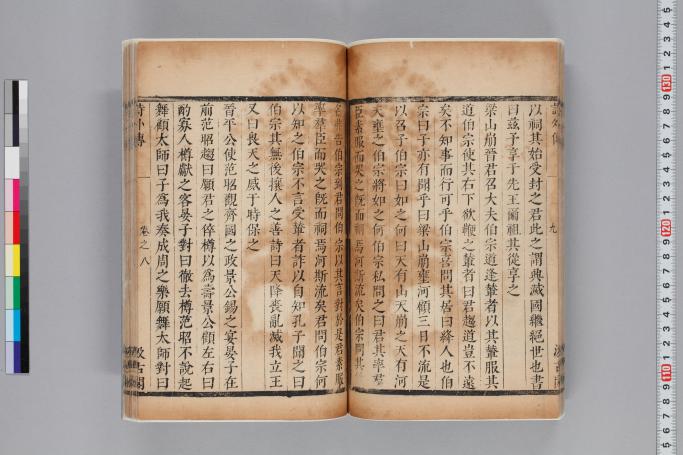 以祠其始受封之君此之謂興滅國繼絕世也書
曰茲予享于先王爾祖其從享之
梁山崩晉君召大夫伯宗道逢輦者以其輦服其
道伯宗使其右下欲鞭之輦者曰君趨道豈不遠
矣不知事而行可乎伯宗喜問其居曰絳人也伯
宗曰子亦有聞乎曰梁山崩壅河顧三日不流是
以召子伯宗曰如之何曰天有山天崩之天有河
天壅之伯宗將如之何伯宗私問之曰君其率羣
臣素服而哭之既而祠焉河斯流矣伯宗問其
名弗告伯宗到君問伯宗以其言對於是君素服
率羣臣而哭之既而祠焉河斯流矣君問伯宗何
以知之伯宗不言受輦者詐以自知孔子聞之曰
伯宗其無後攘人之善詩曰天降喪亂滅我立王
又曰畏天之威于時保之
晉平公使范昭觀齊國之政景公錫之宴晏子在
前范昭趨曰願君之倅樽以為壽景公顧左右曰
酌寡人樽獻之客晏子對曰徹去樽范昭不說起
舞顧太師曰子為我奏成周之樂願舞太師對曰
詩外傳 卷之八 汲古閣